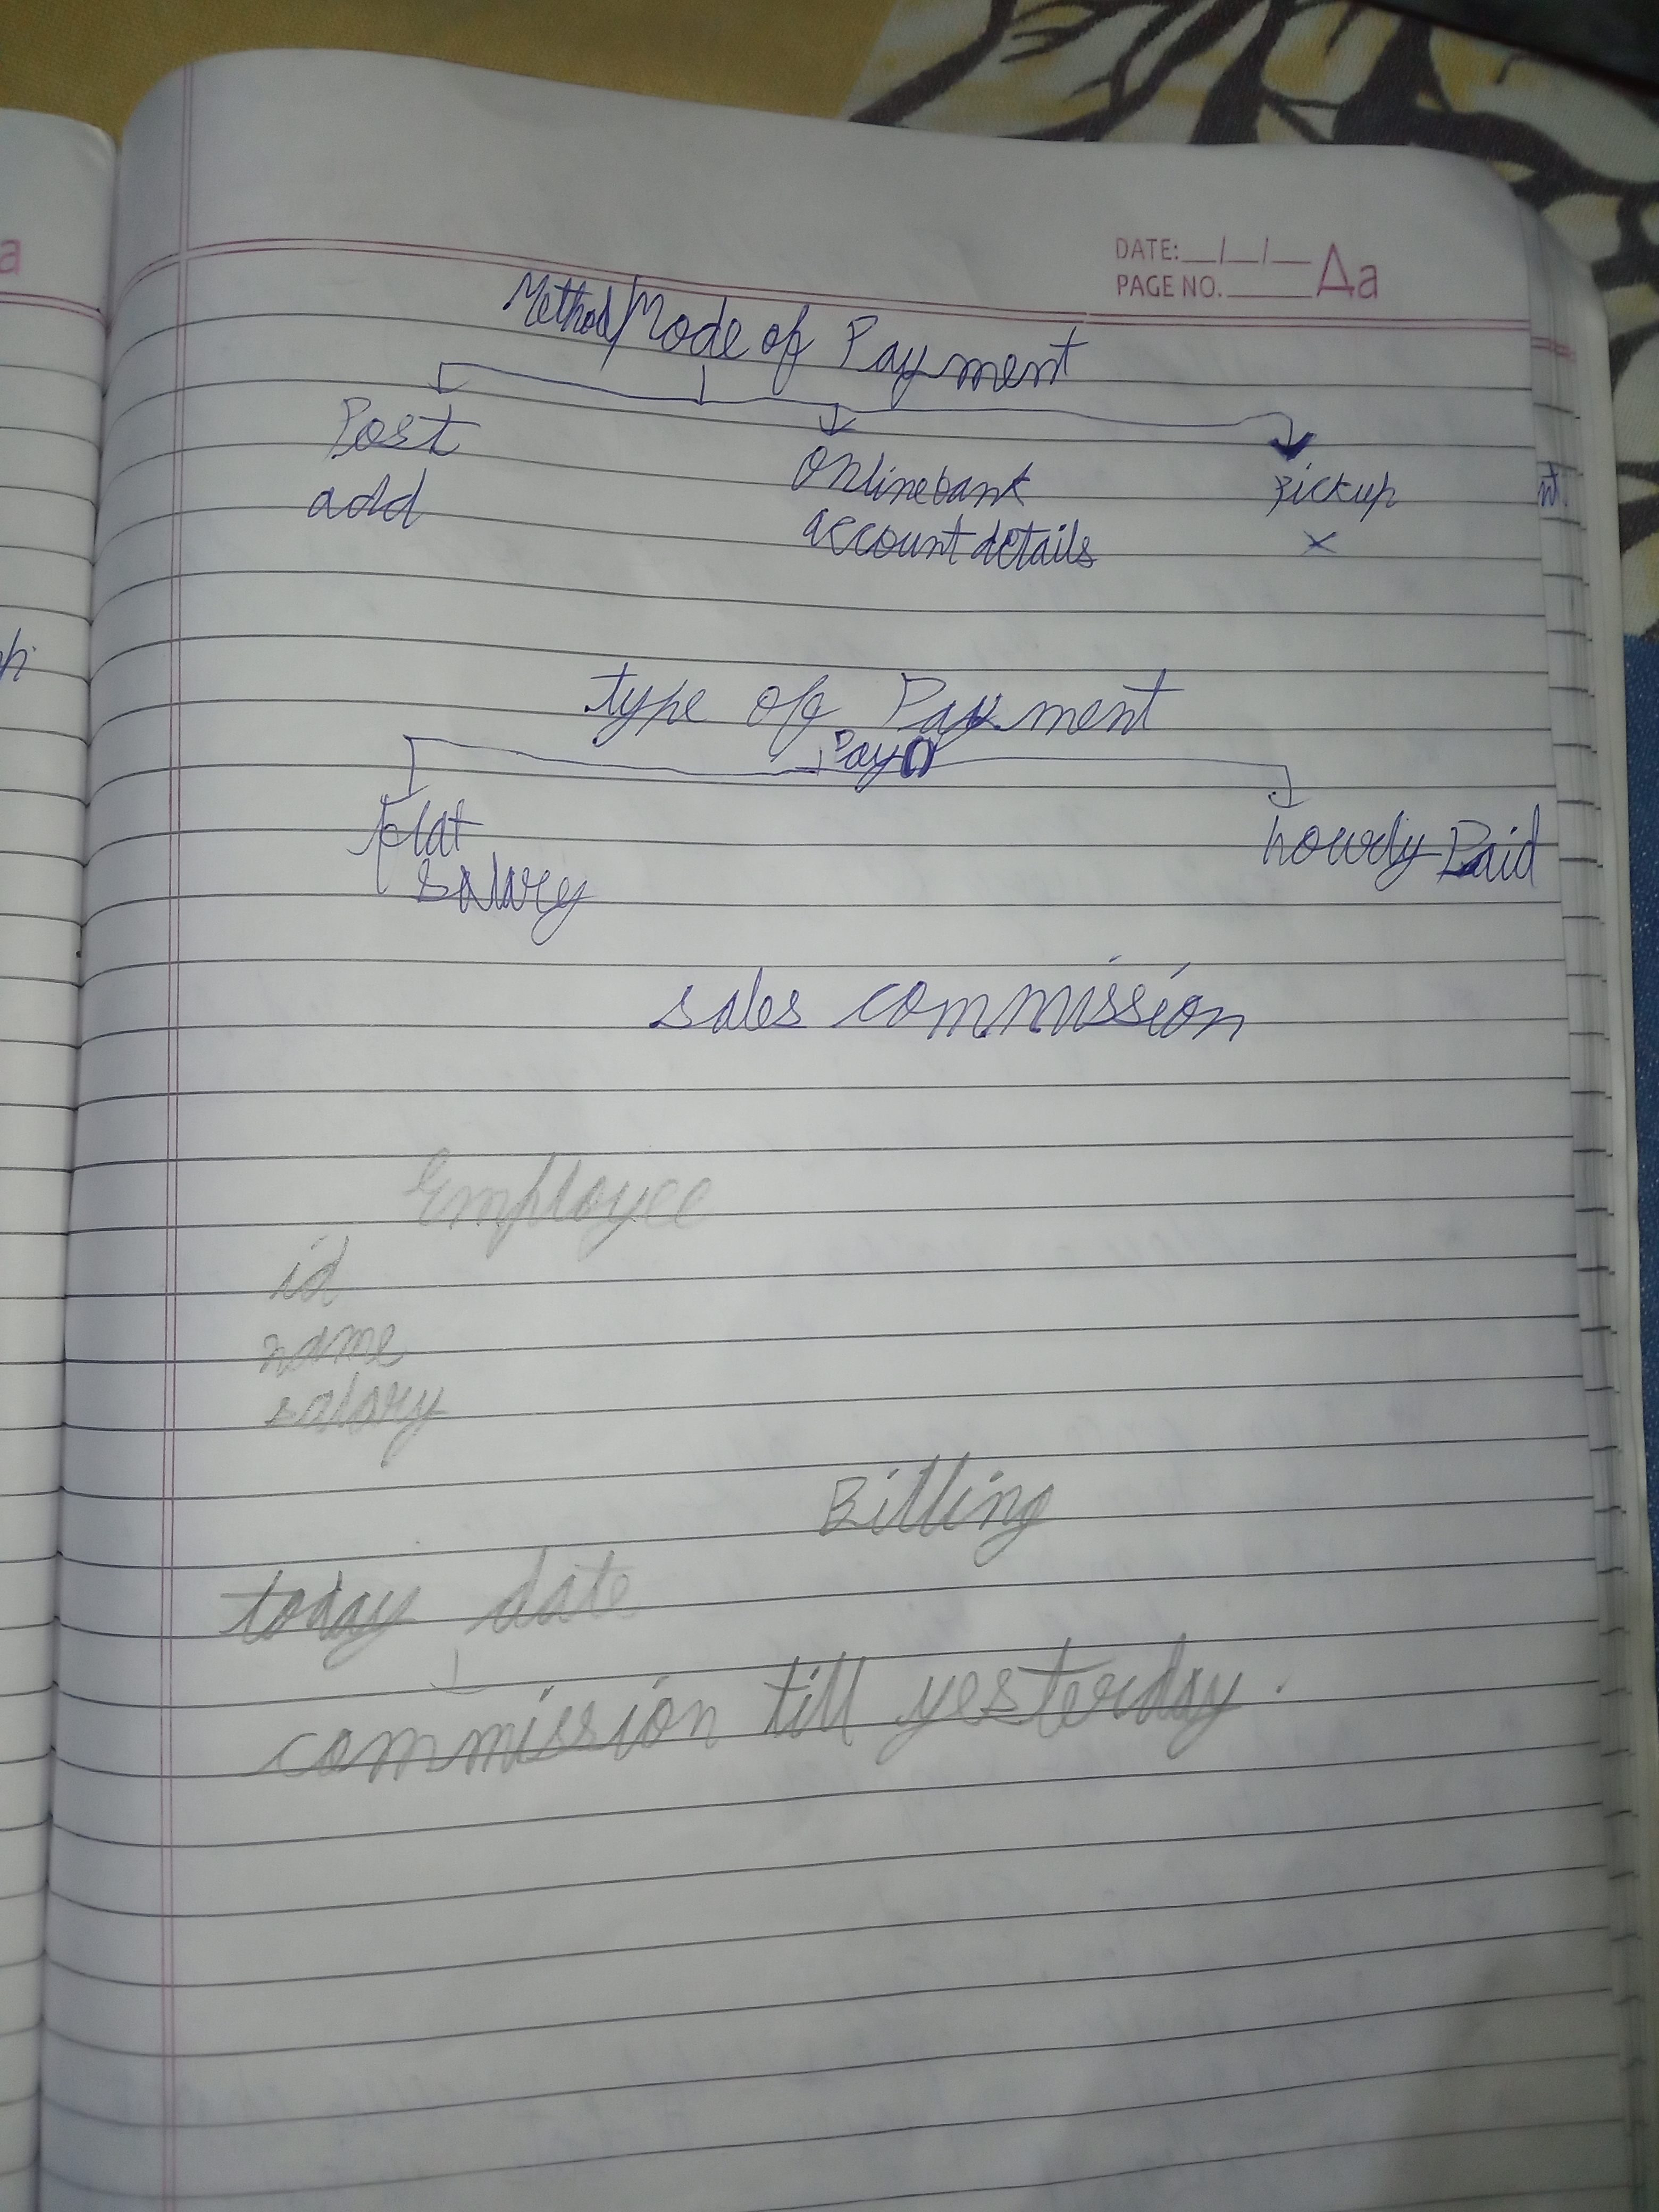 a
DATE: __/__/__
PAGE NO. ____ Aa
Method/Mode of Payment
Post
add
Online bank
account details
Pickup
×
nt.
type of Payment
Pay()
flat
salary
hourly Paid
sales commission
Employee
id
name
salary
Billing
today date
commission till yesterday.